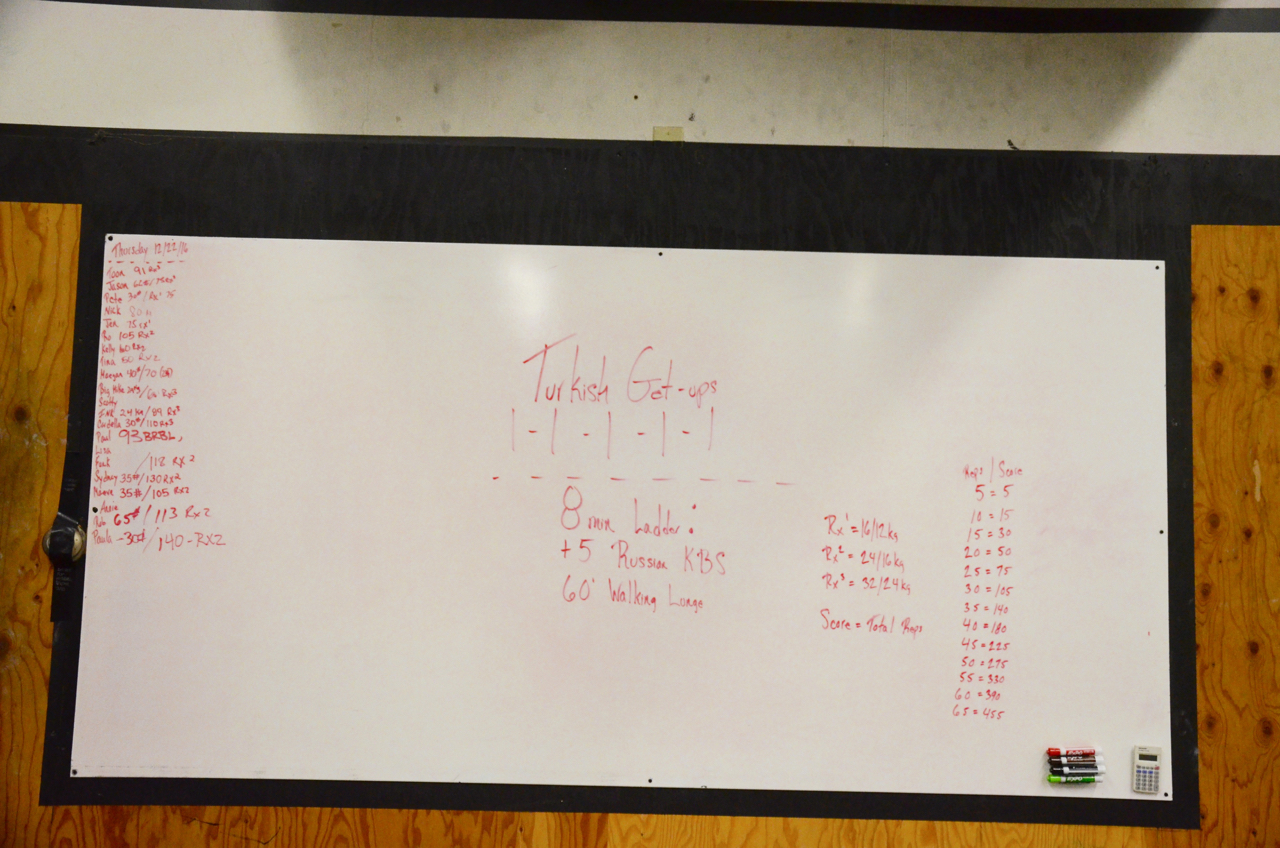 Thursday 12/22/16
91 Rx3
Jason
Pete 35# / Rx1 75
Nick
Jen 75 rx1
105 Rx2
Kelly Rx2
Tina 80 Rx2
Maegan 40#/70
Big Mike Rx3
Scotty
24 kg/89 Rx3
30#/110 Rx3
Paul 93 BRBL,
Lisa
/112 Rx2
Sydney 35#/130 Rx2
35#/105 Rx2
Annie
Rob 65#/113 Rx2
Paula -30#/140-RX2
Turkish Get-ups
1-1-1-1-1
8 min Ladder:
+5 Russian KBS
60' Walking Lunge
Rx1 = 16/12kg
Rx2 = 24/16kg
Rx3 = 32/24kg
Score = Total Reps
Reps | Score
5 = 5
10 = 15
15 = 30
20 = 50
25 = 75
30 = 105
35 = 140
40 = 180
45 = 225
50 = 275
55 = 330
60 = 390
65 = 455